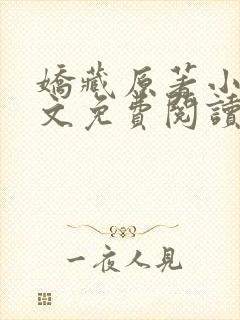 嬌藏原著小
文免費閱讀
一夜人見